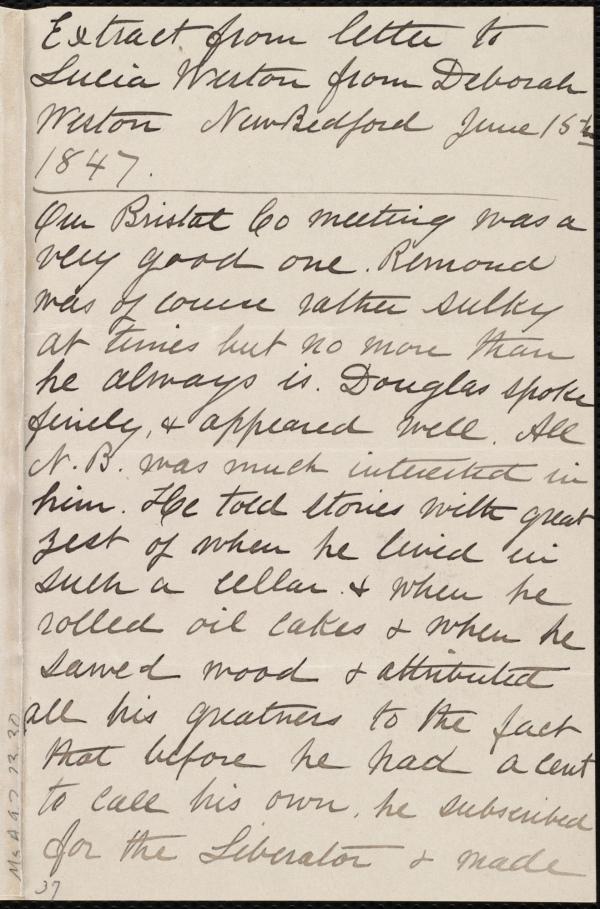 Extract from letter to
Lucia Weston from Deborah
Weston New Bedford June 15th
1847.
Our Bristol Co meeting was a
very good one. Remond
was of course rather sulky
at times but no more than
he always is. Douglas spoke
finely, & appeared well. All
N. B. was much interested in
him. He told stories with great
zest of when he lived in
such a cellar & when he
rolled oil cakes & when he
sawed wood & attributed
all his greatness to the fact
that before he had a cent
to call his own, he subscribed
for the Liberator & made
37